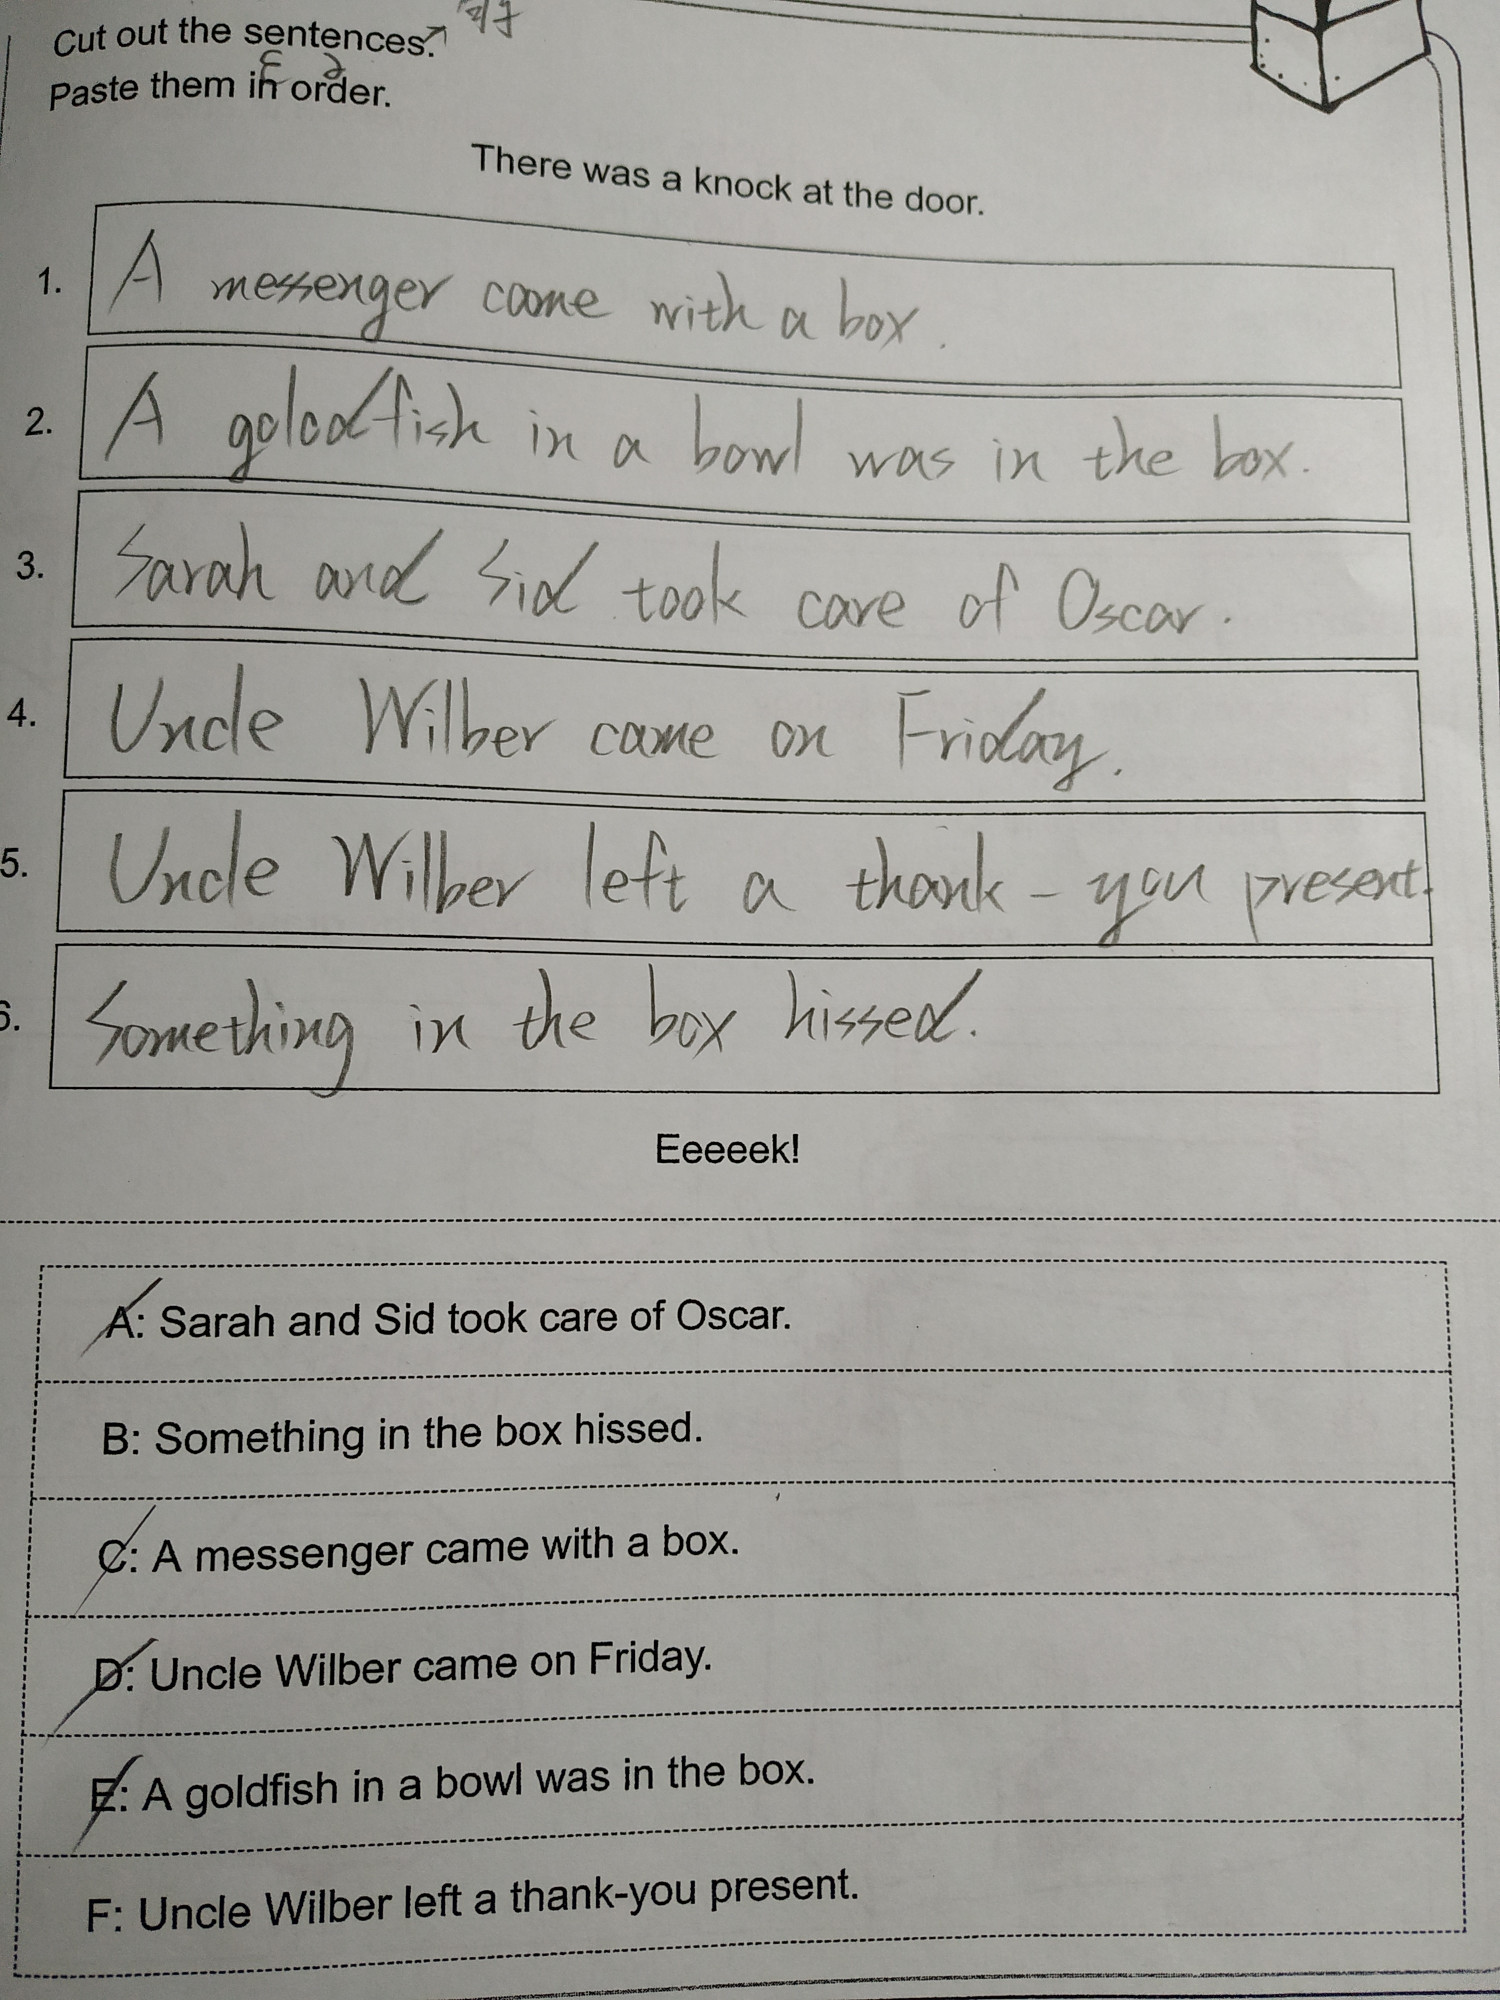 Cut out the sentences.
Paste them in order.
There was a knock at the door.
1. A messenger came with a box.
2. A goldfish in a bowl was in the box.
3. Sarah and Sid took care of Oscar.
4. Uncle Wilber came on Friday.
5. Uncle Wilber left a thank-you present.
6. Something in the box hissed.
Eeeeek!
A: Sarah and Sid took care of Oscar.
B: Something in the box hissed.
C: A messenger came with a box.
D: Uncle Wilber came on Friday.
E: A goldfish in a bowl was in the box.
F: Uncle Wilber left a thank-you present.